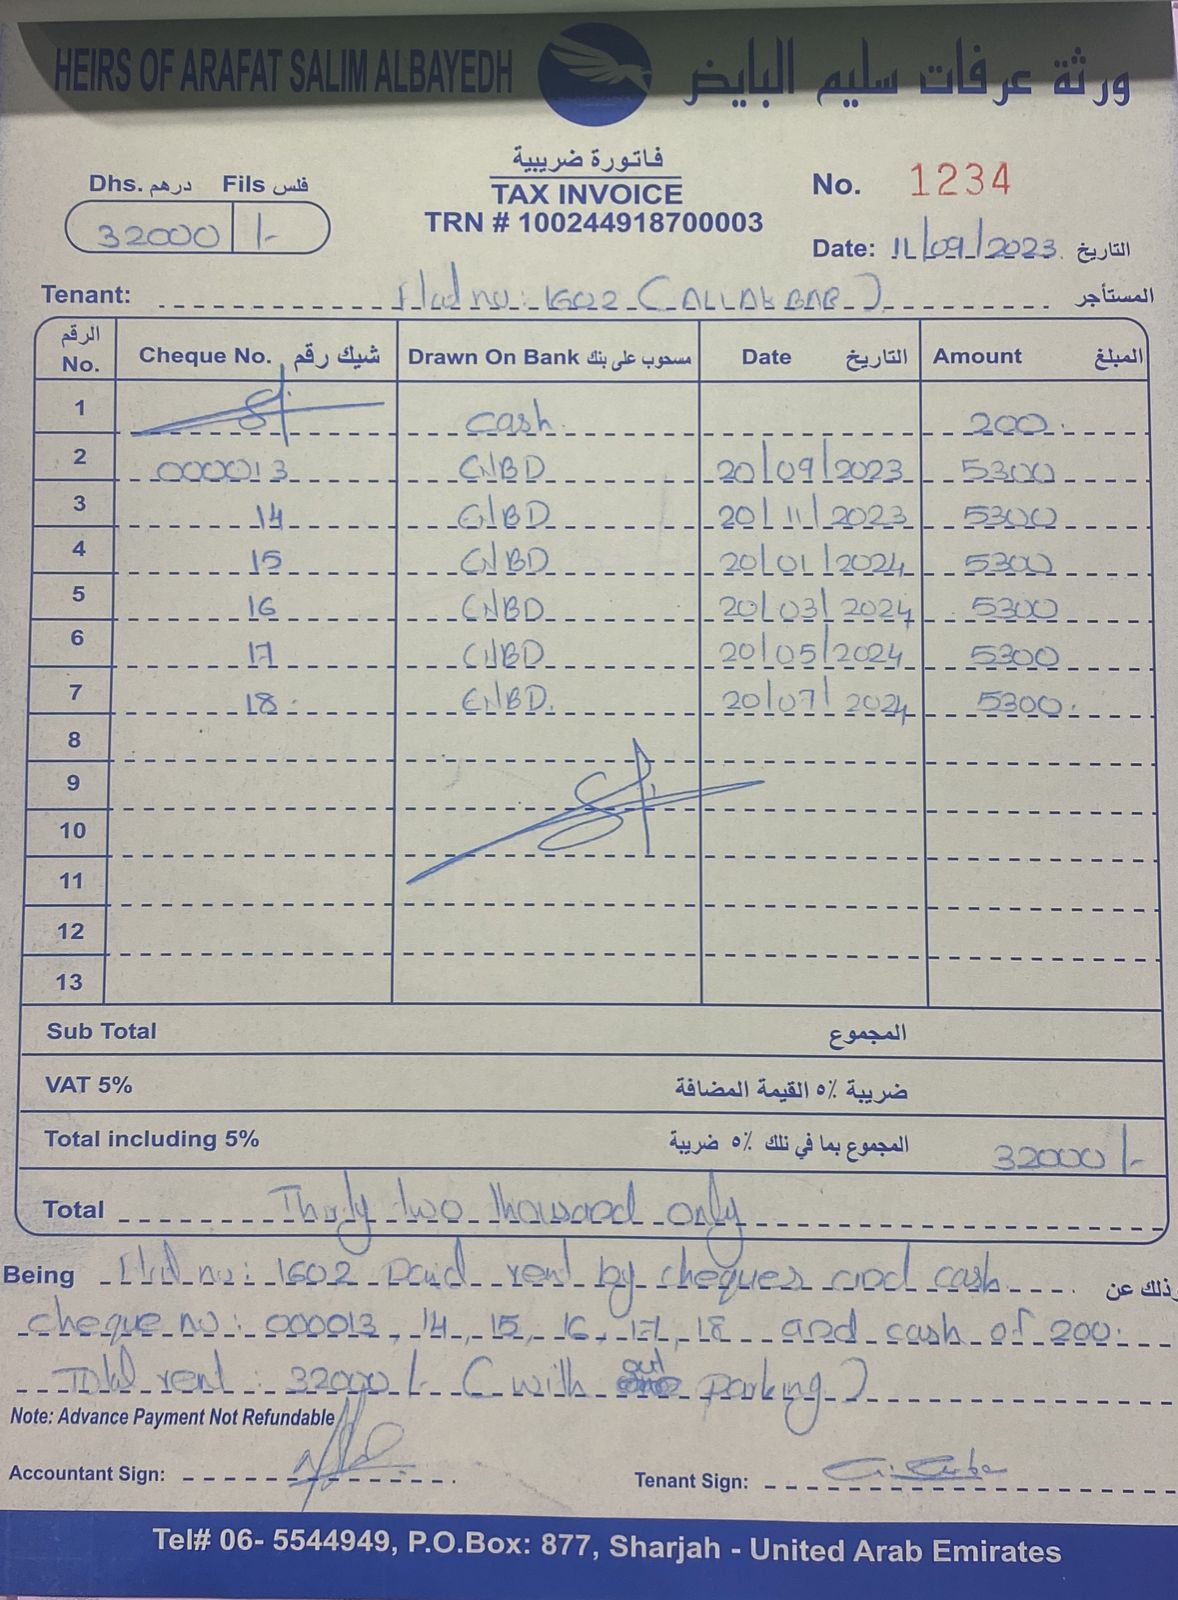 HEIRS OF ARAFAT SALIM ALBAYEDH ورثة عرفات سليم البايض
فاتورة ضريبية
TAX INVOICE
TRN # 100244918700003
Dhs. درهم Fils فلس
32000 /-
No. 1234
Date: 11/09/2023 التاريخ
Tenant: Flat no: 1602 (ALLAKBAR) المستأجر
الرقم No. Cheque No. شيك رقم Drawn On Bank مسحوب على بنك Date التاريخ Amount المبلغ
1 Cash. 200.
2 000013 ENBD 20/09/2023 5300
3 14 ENBD 20/11/2023 5300
4 15 ENBD 20/01/2024 5300
5 16 ENBD 20/03/2024 5300
6 17 ENBD 20/05/2024 5300
7 18. ENBD. 20/07/2024 5300.
8
9
10
11
12
13
Sub Total المجموع
VAT 5% ضريبة ٥٪ القيمة المضافة
Total including 5% المجموع بما في تلك ٥٪ ضريبة 32000/-
Total Thirty two thousand only
Being Flat no: 1602 Paid rent by cheques and cash. وذلك عن
cheque no: 000013, 14, 15, 16, 17, 18 and cash of 200.
Total rent: 32000/- (with out parking)
Note: Advance Payment Not Refundable
Accountant Sign:
Tenant Sign:
Tel# 06- 5544949, P.O.Box: 877, Sharjah - United Arab Emirates